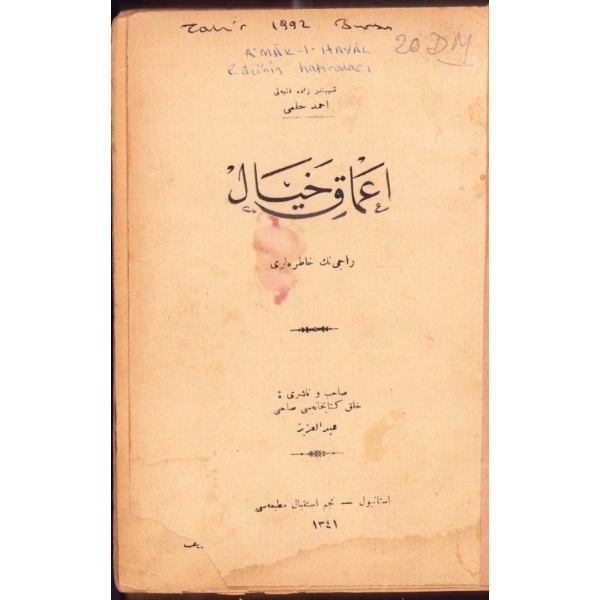 Tahir 1992 Bursa
A'MÂK-I HAYÂL
20 DM
Râcî'nin hatıraları
شهبندر زاده فلبه‌لی
احمد حلمی
اعماق خیال
راجی‌نك خاطره‌لری
صاحب و ناشری :
خلق كتابخانه‌سی صاحبی
عبدالعزیز
استانبول — نجم استقبال مطبعه‌سی
١٣٤١